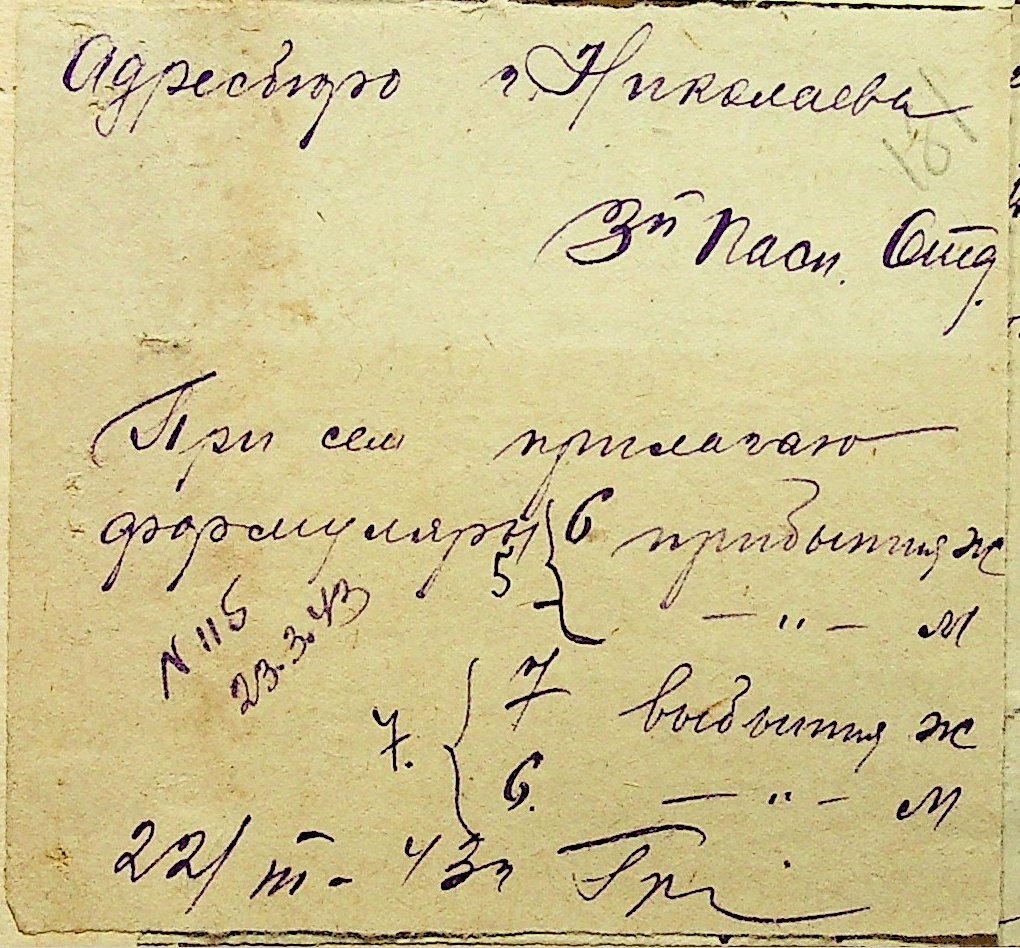 Адресбюро г. Николаева
181
3й Пасп. Отд.
При сем прилагаю
формуляры 6 прибытия ж
5 — " — м
N 115
23.3.43
7. 7 выбытия ж
6. — " — м
22/III - 43г